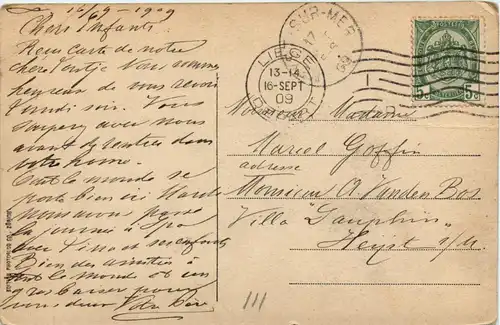 16/9 - 1909
Chers Enfants
Reçu carte de notre
cher Nous sommes
heureux de vous revoir
soir. Vous
souperez avec nous
avant de rentrer dans
votre home.
Tout le monde se
porte bien ici Mardi
nous avons passé
la journée à Spa
avec et ses enfants
Bien des amitiés à
tout le monde et un
gros baiser pour
vous deux Votre Père
SUR-MER
17
09
LIEGE
13-14
16-SEPT
09
DEPART
5c 5c
Monsieur Madame
Marcel Goffin
adresse
Monsieur A. Vanden Bos
Villa "Dauphin"
Heyst s/M.
111